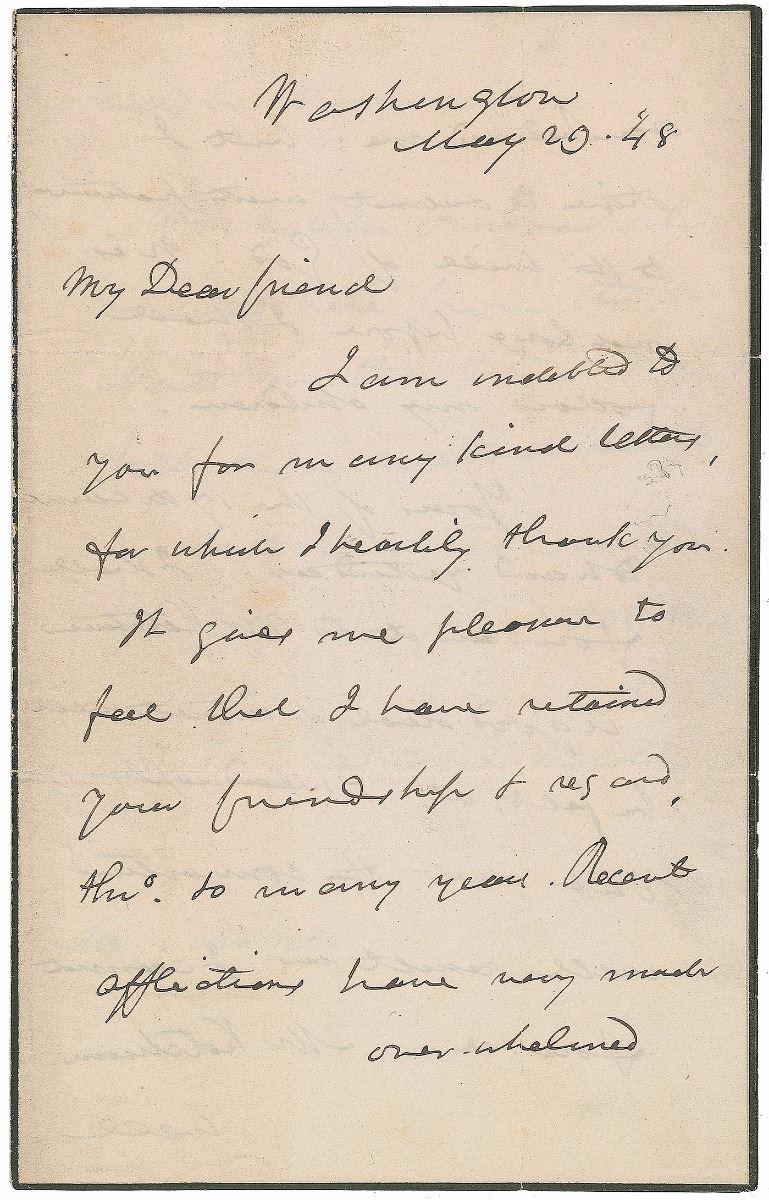 Washington
May 29. '48
My Dear friend
I am indebted to
you for many kind letters,
for which I heartily thank you.
It gives me pleasure to
feel that I have retained
your friendship & regard,
thro. so many years. Recent
afflictions have very much
over-whelmed